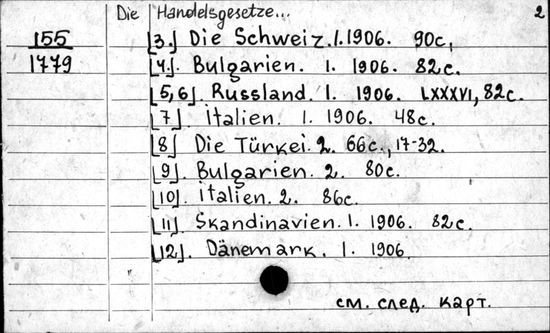 Die Handelsgesetze... 2
155 [3.] Die Schweiz. 1. 1906. 90с,
1779 [4]. Bulgarien. 1. 1906. 82с.
[5,6]. Russland. 1. 1906. LXXXVI, 82с.
[7]. Italien. 1. 1906. 48с.
[8] Die Türkei. 2. 66с., 17-32.
[9]. Bulgarien. 2. 80с.
[10]. Italien. 2. 86с.
[11]. Skandinavien. 1. 1906. 82с.
[12]. Dänemark. 1. 1906
см. след. карт.